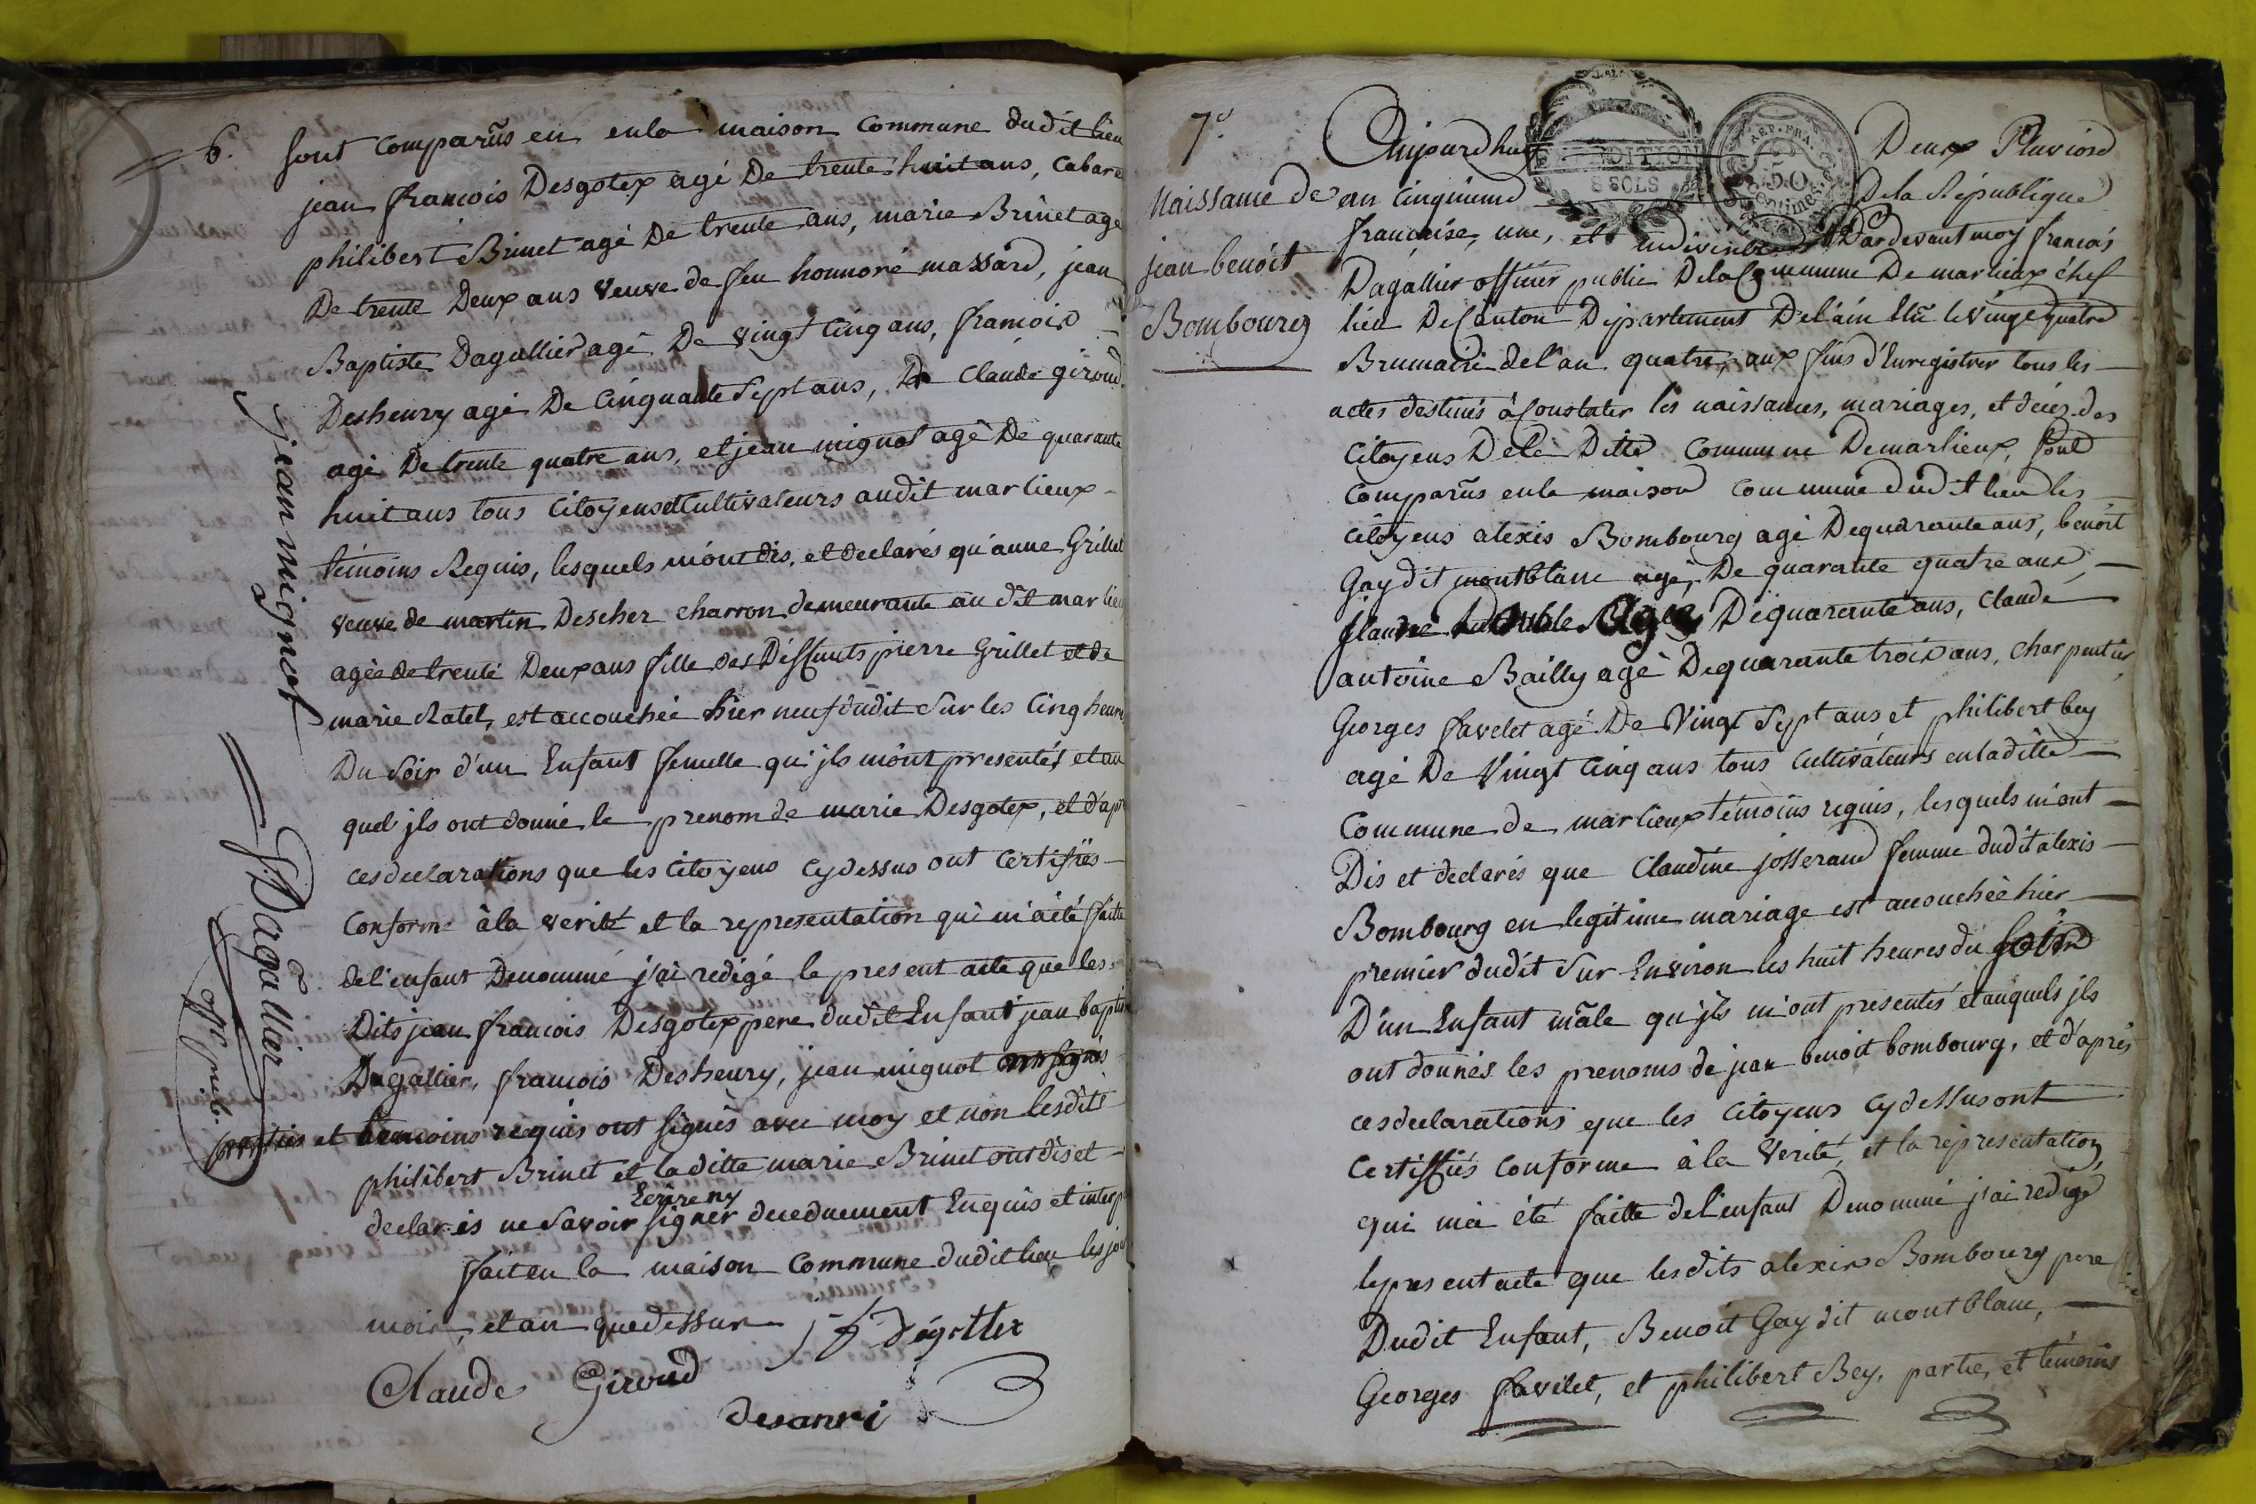 6.
sont comparûs en enla maison commune dudit lieu
jean francois Desgotex agé De trente huit ans, cabare
philibert Brinet agé De trente ans, marie Brinet age
De trente Deux ans veuve de feu honnoré massard, jean
Baptiste Dagallier agé De vingt Cinq ans, francois
Desheury agé De Cinquante Sept ans, Claude giroud
agé De trente quatre ans, et jean mignot agé De quarante
huit ans tous Citoyens et Cultivateurs audit marlieux
témoins Requis, lesquels m'ont dis, et declarés qu'anne Grillet
veuve de martin Descher charron demeurante au dit marlieu
agée de trente Deux ans fille des Deffunts pierre Grillet et de
marie Ratel, est accouchée hier neuf dudit Sur les Cinq heure
Du Soir d'un Enfant femelle qu'jls m'ont presentés et au
quel jls ont donné le prenom de marie Desgotex, et d'apr
ces declarations que les Citoyens cy dessus ont Certifiés
Conforme à la verité et la representation qui m'a été faitte
de l'enfant Denommé j'ai redigé le present acte que les
Dits jean francois Desgotex pere dudit Enfant jean baptis
Dagallier, francois Desheury, jean mignot
parties et temoins requis ont signés avec moy et non lesdits
philibert Brinet et laditte marie Brinet ont dis et
Ecrire ny
declarés ne Savoir signer de ce duement Enquis et interp
fait en la maison Commune dudit lieu les jou
mois, et an que dessus
j f Dégottex
Claude Giroud
desanri
jean mignot
f. Dagallier
offr. publ.
7e
Naissance de
jean benoit
Bombourg
Aujourdhuy Deux Pluviose
an Cinquieme De la République
REP. FRA.
50
Centimes
8 SOLS
francaise, une, et indivisible Pardevant moy francois
Dagallier officier public De la Commune De marlieux chef
lieu De Canton Département De l'ain Elû le vingt quatre
Brumaire de l'an quatre, aux fins d'Enregistrer tous les
actes destinés à Constater les naissances, mariages, et décés des
Citoyens De la Ditte Commune De marlieux, sont
Comparûs enla maison commune dudit lieu les
citoyens alexis Bombourg agé De quarante ans, benoit
Gay dit montblanc agé, De quarante quatre ans,
Agé De quarante ans, Claude
antoine Bailly agé De quarante trois ans, charpentier,
Georges favelet agé De Vingt Sept ans et philibert bey
agé De Vingt Cinq ans tous Cultivateurs en laditte
Commune de marlieux témoins requis, lesquels m'ont
Dis et declarés que Claudine josserand femme dudit alexis
Bombourg en legitime mariage est accouchée hier
premier dudit Sur Environ les huit heures du soir
D'un Enfant mâle qu'jls m'ont presentés et auquels jls
ont donnés les prenoms de jean benoit bombourg, et d'après
ces declarations que les Citoyens cy dessus ont
Certiffiés Conforme à la Verité, et la representation
qui m'a été faitte de l'enfant Denommé j'ai redigé
le present acte que lesdits alexis Bombourg pere
Dudit Enfant, Benoit Gay dit montblanc,
Georges favelet, et philibert Bey, partie, et témoins